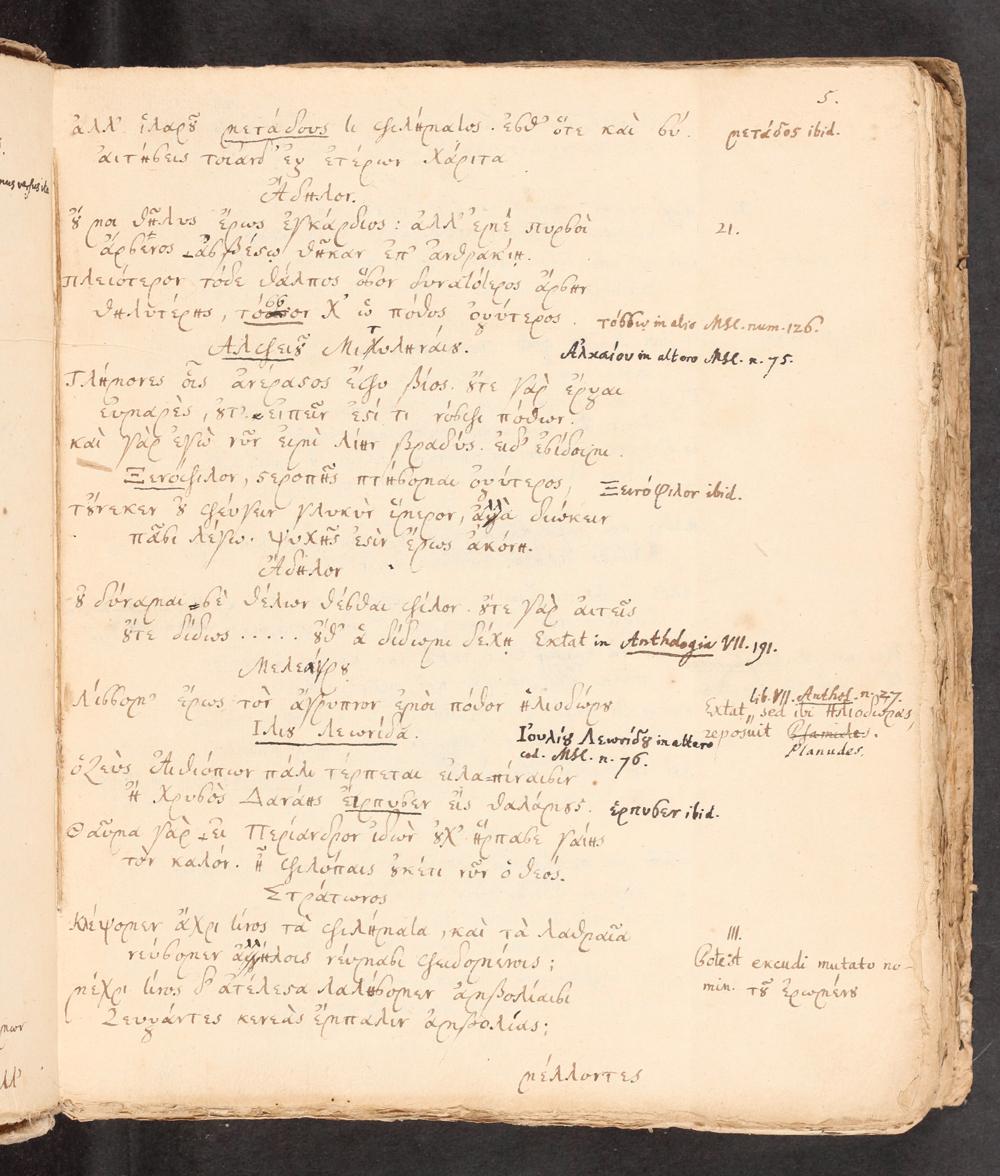 5.
ἀλλ' ἱλαροῦ μετάδους τι φιλήματος. ἔσθ' ὅτε καὶ σύ.
μετάδος ibid.
αἰτήσεις τοιάνδ' ἐξ ἑτέρων χάριτα
Ἄδηλον.
οὔ μοι θῆλυς ἔρως ἐγκάρδιος: ἀλλ' ἐμὲ πυρσοὶ
21.
ἄρσενος ἀσβέστῳ θῆκαν ἐπ' ἀνθρακίῃ.
πλειότερον τόδε θάλπος ὅσον δυνατότερος ἄρσην
θηλυτέρης, τόσσον χ' ὡ πόθος ὀξύτερος.
τόσσω in alio MSC. num. 126.
Ἀλφειοῦ Μιτυληναίου.
Ἀλκαίου in altero MSC. n. 75.
Τλήμονες οἷς ἀνέραστος ἔφυ βίος. οὔτε γὰρ ἔρξαι
εὐμαρὲς, οὔτ' εἰπεῖν ἐστί τι νόσφι πόθων.
καὶ γὰρ ἐγὼ νῦν εἰμὶ λίην βραδύς. εἰ δ' ἐσίδοιμι
Ξενόφιλον, στεροπῆς πτήσομαι ὀξύτερος,
Ξεινόφιλον ibid.
τοὔνεκεν οὐ φεύγειν γλυκὺν ἵμερον, ἀλλὰ διώκειν
πᾶσι λέγω. ψυχῆς ἐστὶν ἔρως ἀκόνη.
Ἄδηλον
οὐ δύναμαι σὲ θέλων θέσθαι φίλον. οὔτε γὰρ αἰτεῖς
οὔτε δίδως ..... οὔθ' ἃ δίδωμι δέχῃ Extat in Anthologia VII. 191.
Μελεάγρου
Λίσσομ' ἔρως τὸν ἄγρυπνον ἐμοὶ πόθον ἡλιοδώρου
lib. VII. Anthol. n. 27.
Extat, sed ibi Ἡλιοδώρας
reposuit
Planudes.
Ἰλίου Λεωνίδα.
Ἰουλίου Λεωνίδου in altero
cod. MSC. n. 76.
ὁ Ζεὺς Αἰθιόπων πάλι τέρπεται εἰλαπίναισιν
ἢ χρυσὸς Δανάης εἵρπυσεν εἰς θαλάμους.
ἑρπυσεν ibid.
θαῦμα γὰρ εἰ Περίανδρον ἰδὼν οὐχ' ἥρπασε γαίης
τὸν καλόν. ἢ φιλόπαις οὐκέτι νῦν ὁ θεός.
Στράτωνος
Κλέψομεν ἄχρι τίνος τὰ φιλήματα, καὶ τὰ λαθραῖα
III.
νεύσομεν ἀλλήλοις νεύμασι φειδομένοις;
Poteſt excudi mutato no-
μέχρι τίνος δ' ἀτέλεστα λαλήσομεν ἀμβολίαισι
min. τοῦ ἐρωμένου
ζεύξαντες κενεὰς ἔμπαλιν ἀμβολίας;
μέλλοντες